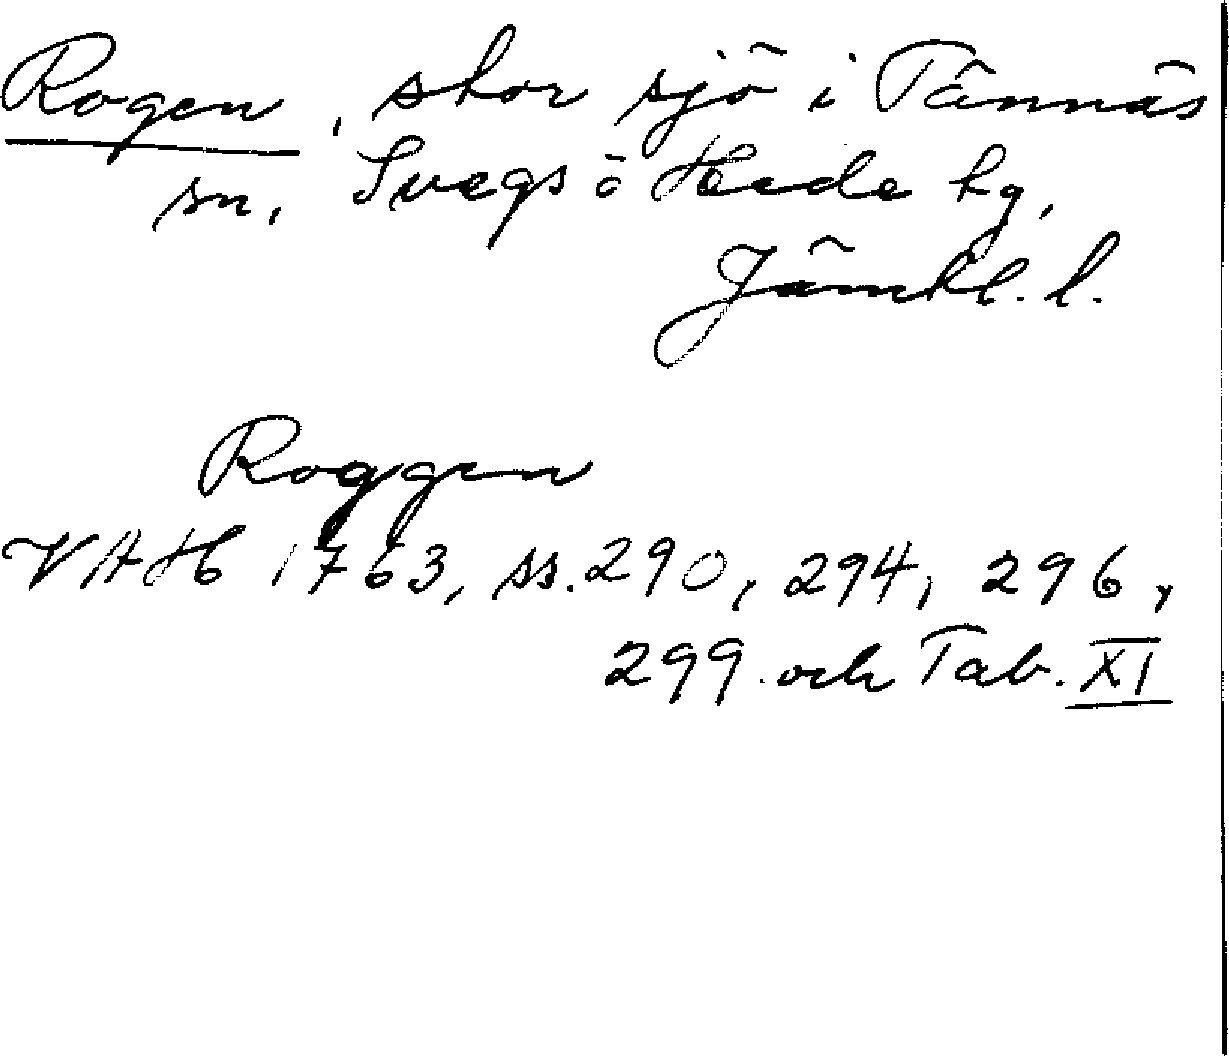 Rogen, stor sjö i Tännäs
sn, Svegs o Hede hg,
Jämtl. l.
Roggen
VAH 1763, ss. 290, 294, 296,
299 och Tab. XI